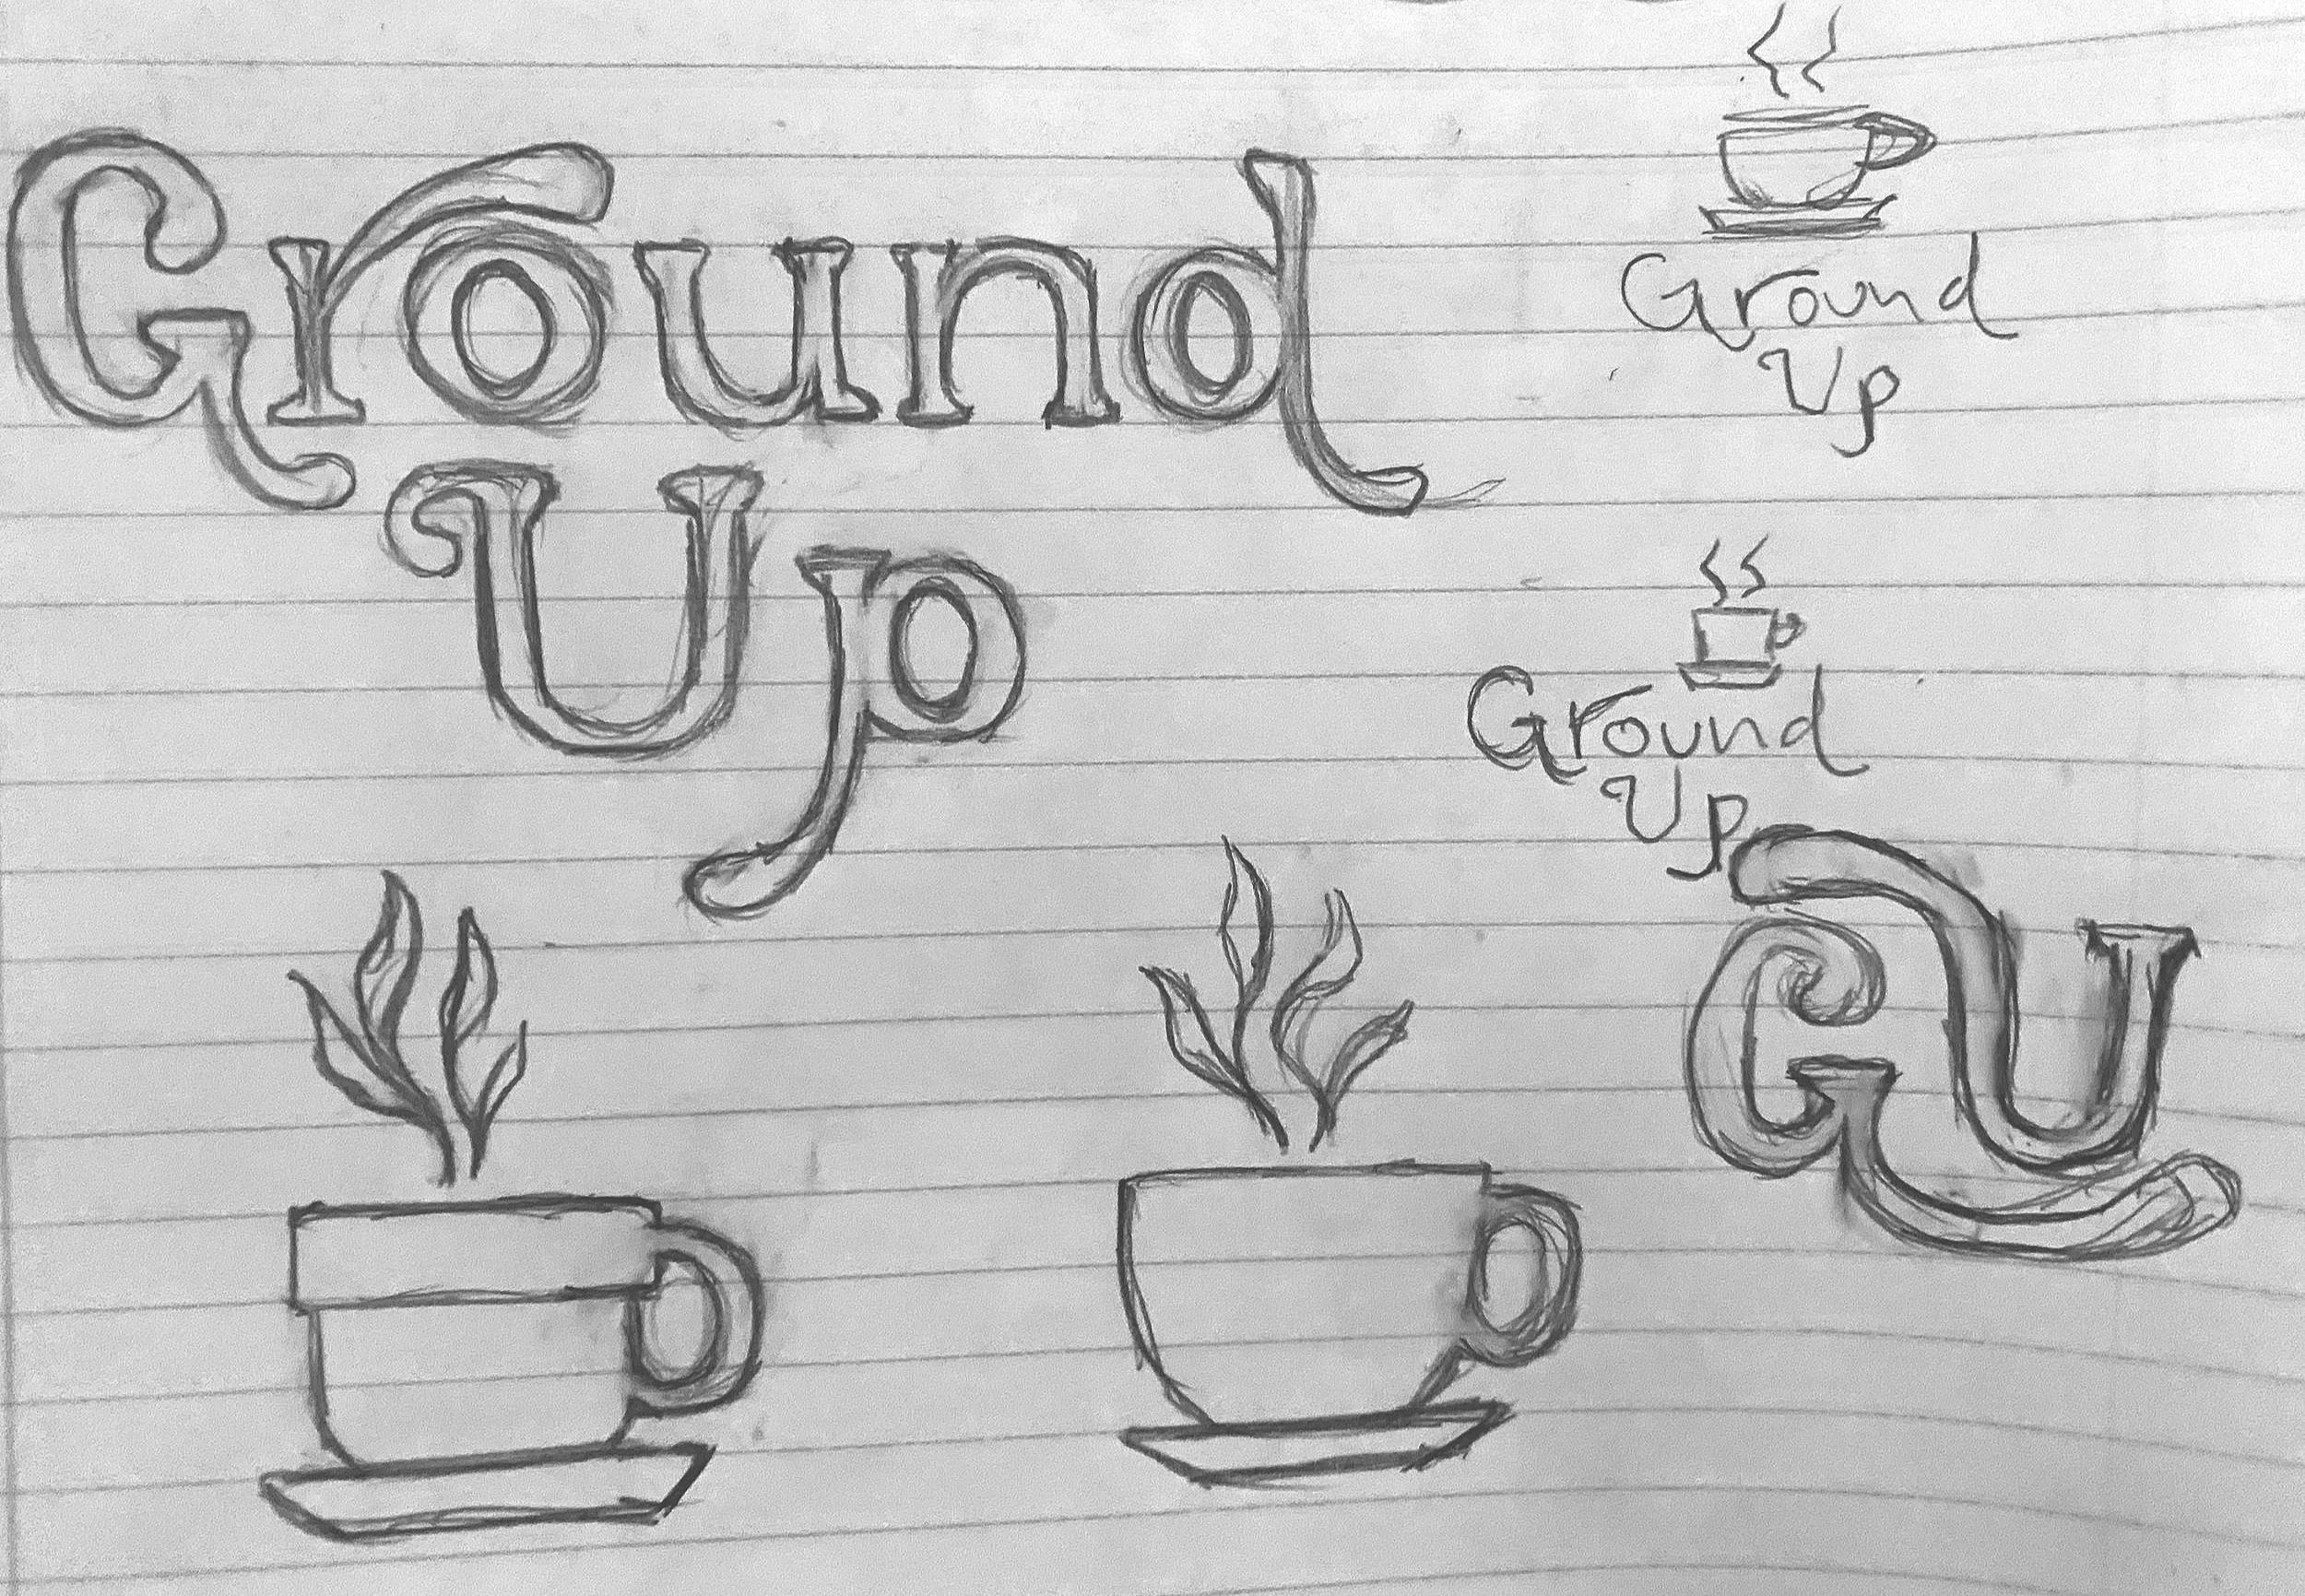 Ground
Up
Ground
Up
Ground
Up
GU